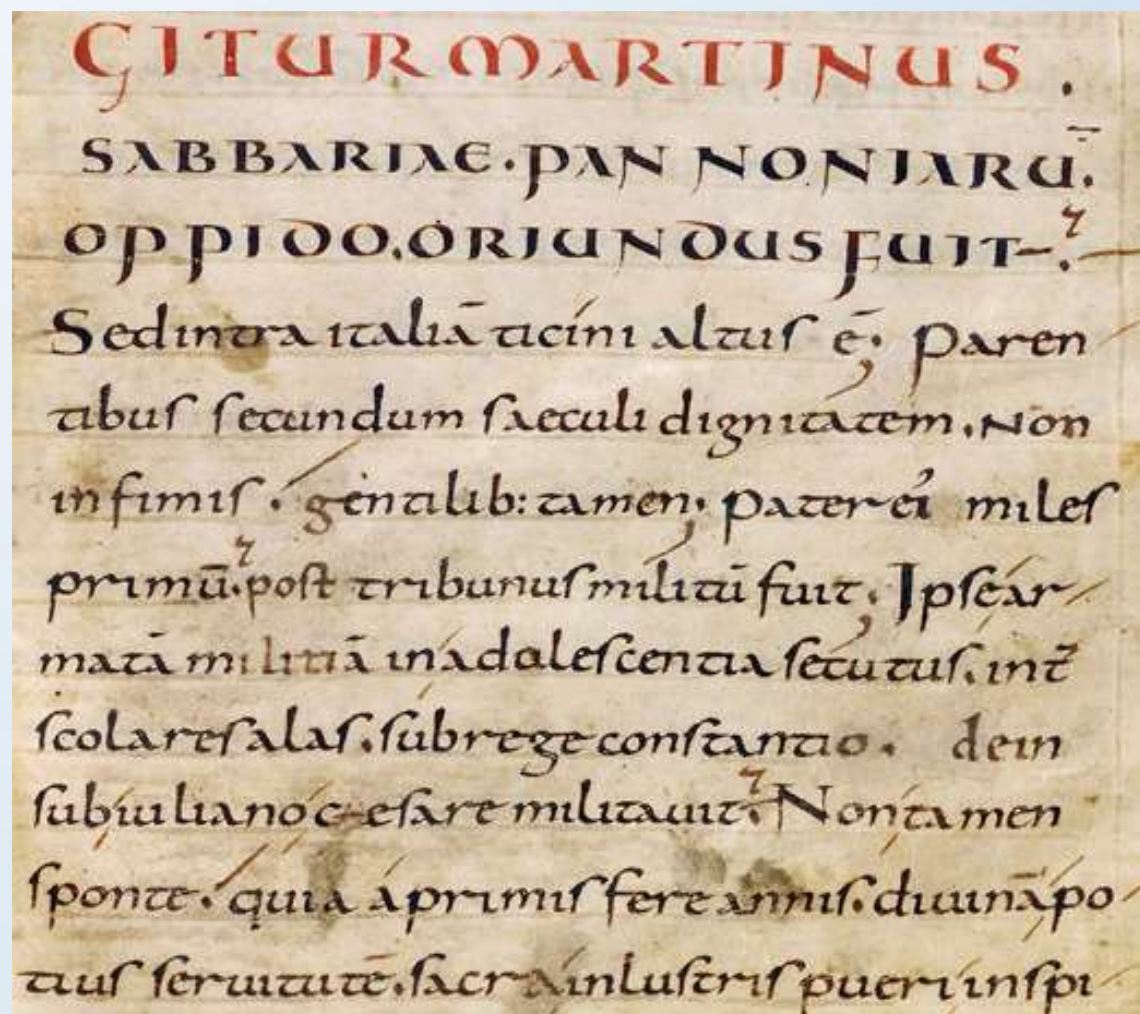 GITUR MARTINUS.
SABBARIAE. PANNONIARŪ.
OPPIDO. ORIUNDUS FUIT.
Sed intra italiā ticini altus ē; Paren
tibus secundum saeculi dignitatem. Non
infimis. gentilib: tamen; Pater ei' miles
primū. post tribunus militū fuit; Ipse ar
matā militiā in adolescentia secutus. int̄
scolares alas. sub rege constantio. dein
sub iuliano caesare militauit. Non tamen
sponte. quia a primis fere annis. diuinā po
tius seruitutē. sacra inlustris pueri inspi